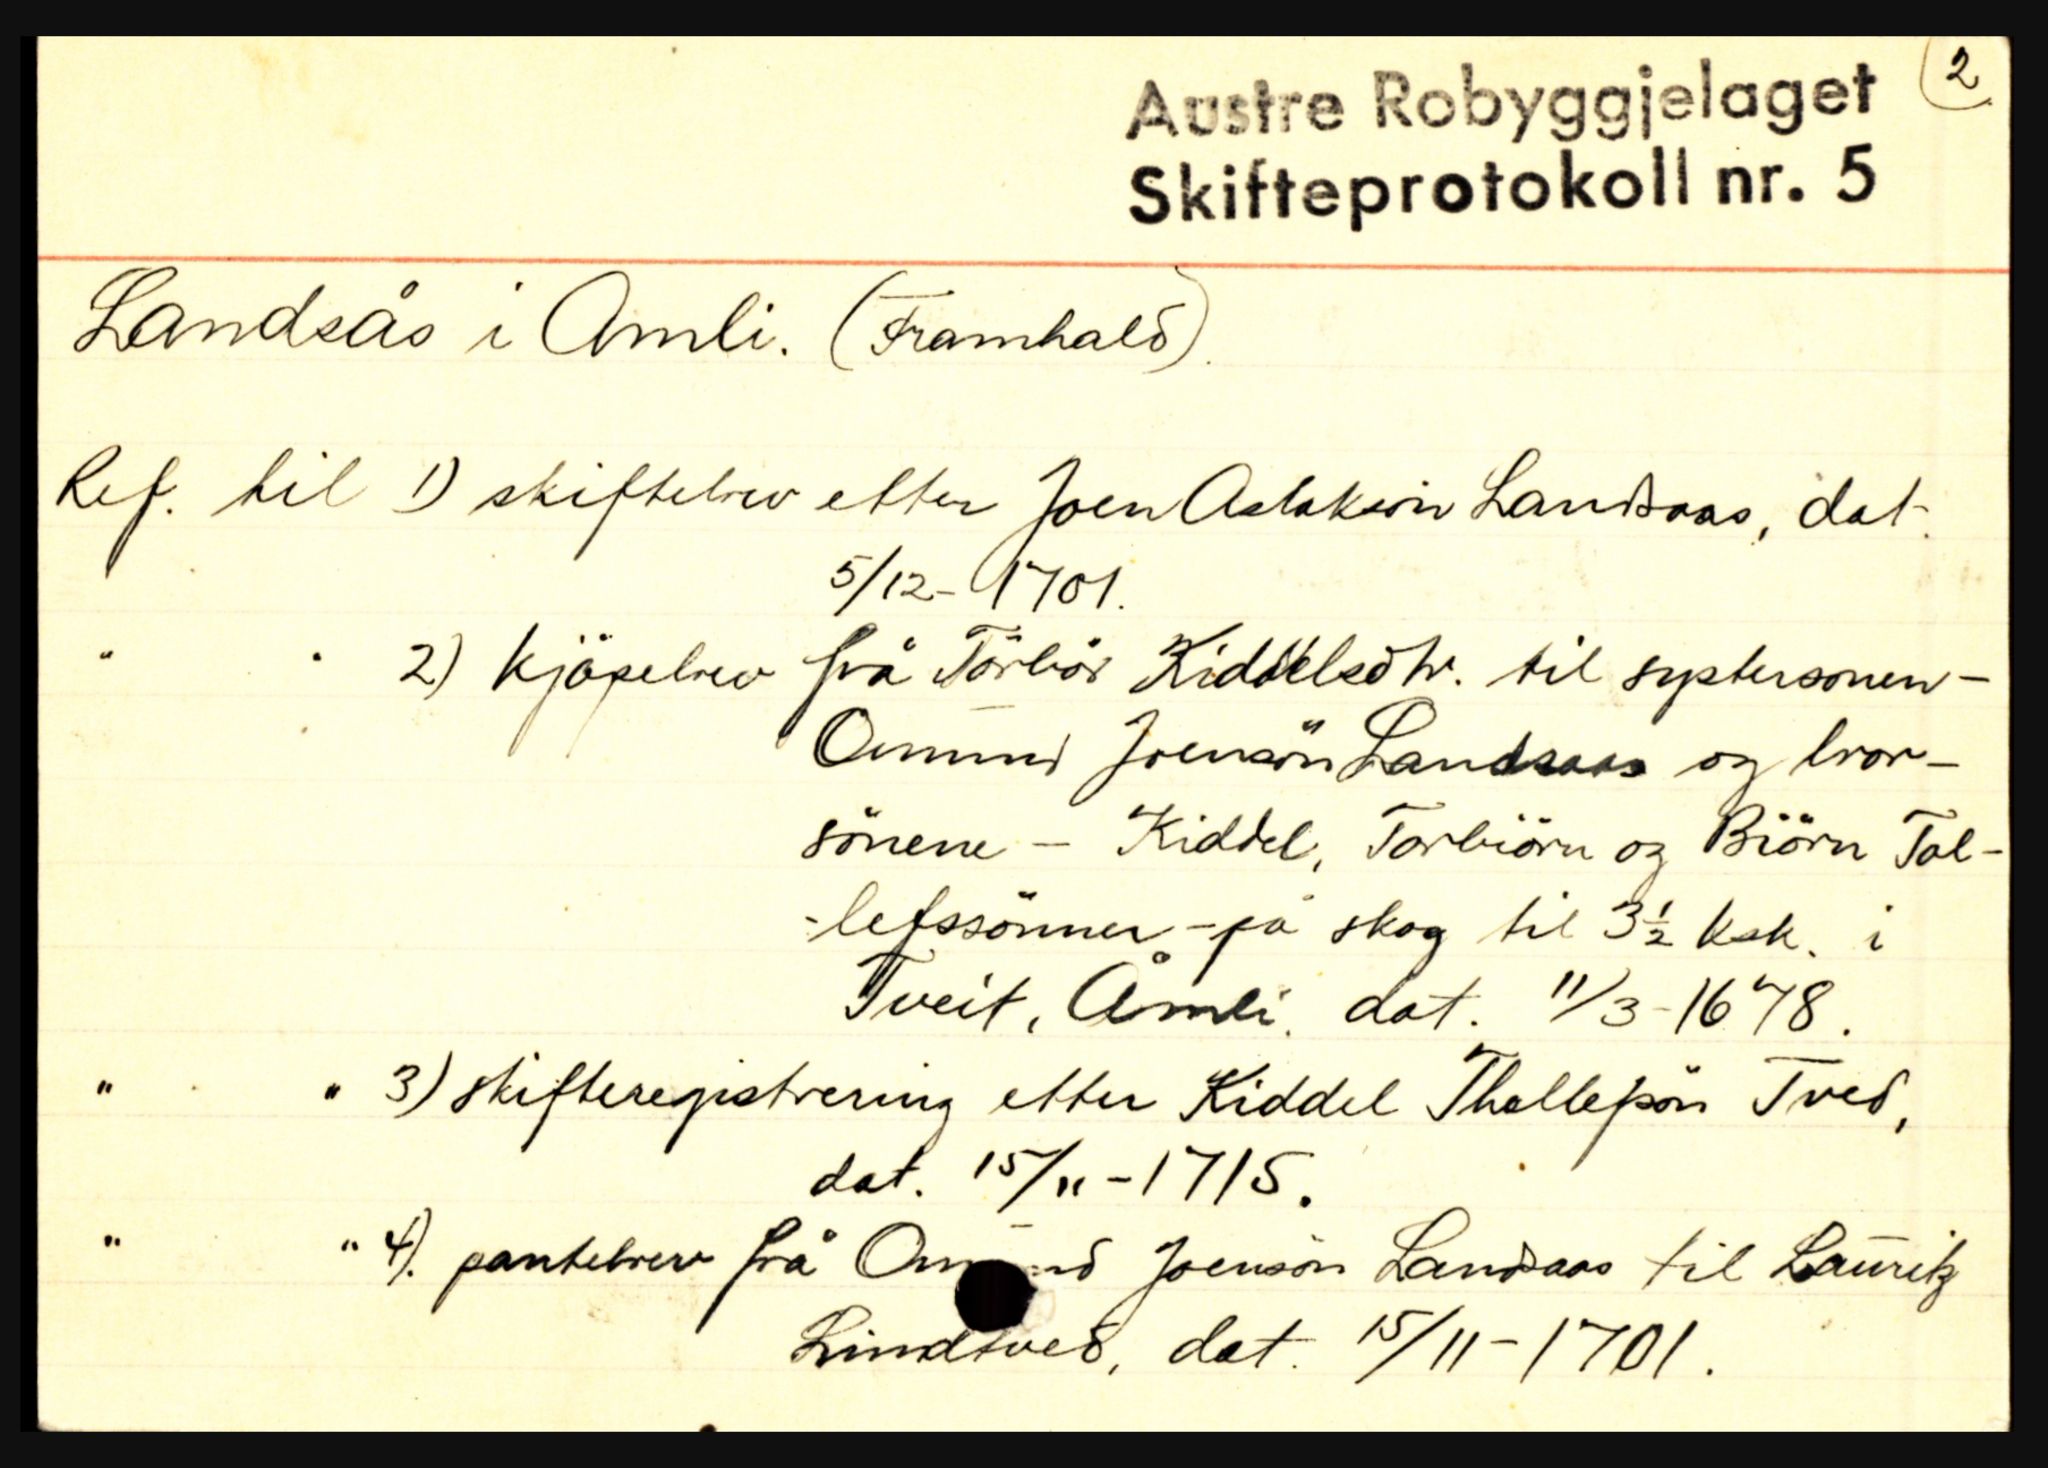 2
Austre Robyggjelaget
Skifteprotokoll nr. 5
Landsås i Åmli. (Framhald).
Ref. til 1) skiftebrev etter Joen Aslaksön Landsaas, dat.
5/12-1701.
" " 2) kjöpebrev frå Törbör Kiddelsdtr. til systersonen -
Omund Joensön Landsaas og bror-
sönene - Kiddel, Torbiörn og Biörn Tol-
-lefssönner - på skog til 3½ ksk. i
Tveit, Åmli. dat. 11/3-1678.
" " 3) skifteregistrering etter Kiddel Thollefsön Tved,
dat. 15/11-1715.
" " 4). pantebrev frå Omund Joensön Landsaas til Lauritz
Lindtved, dat. 15/11-1701.